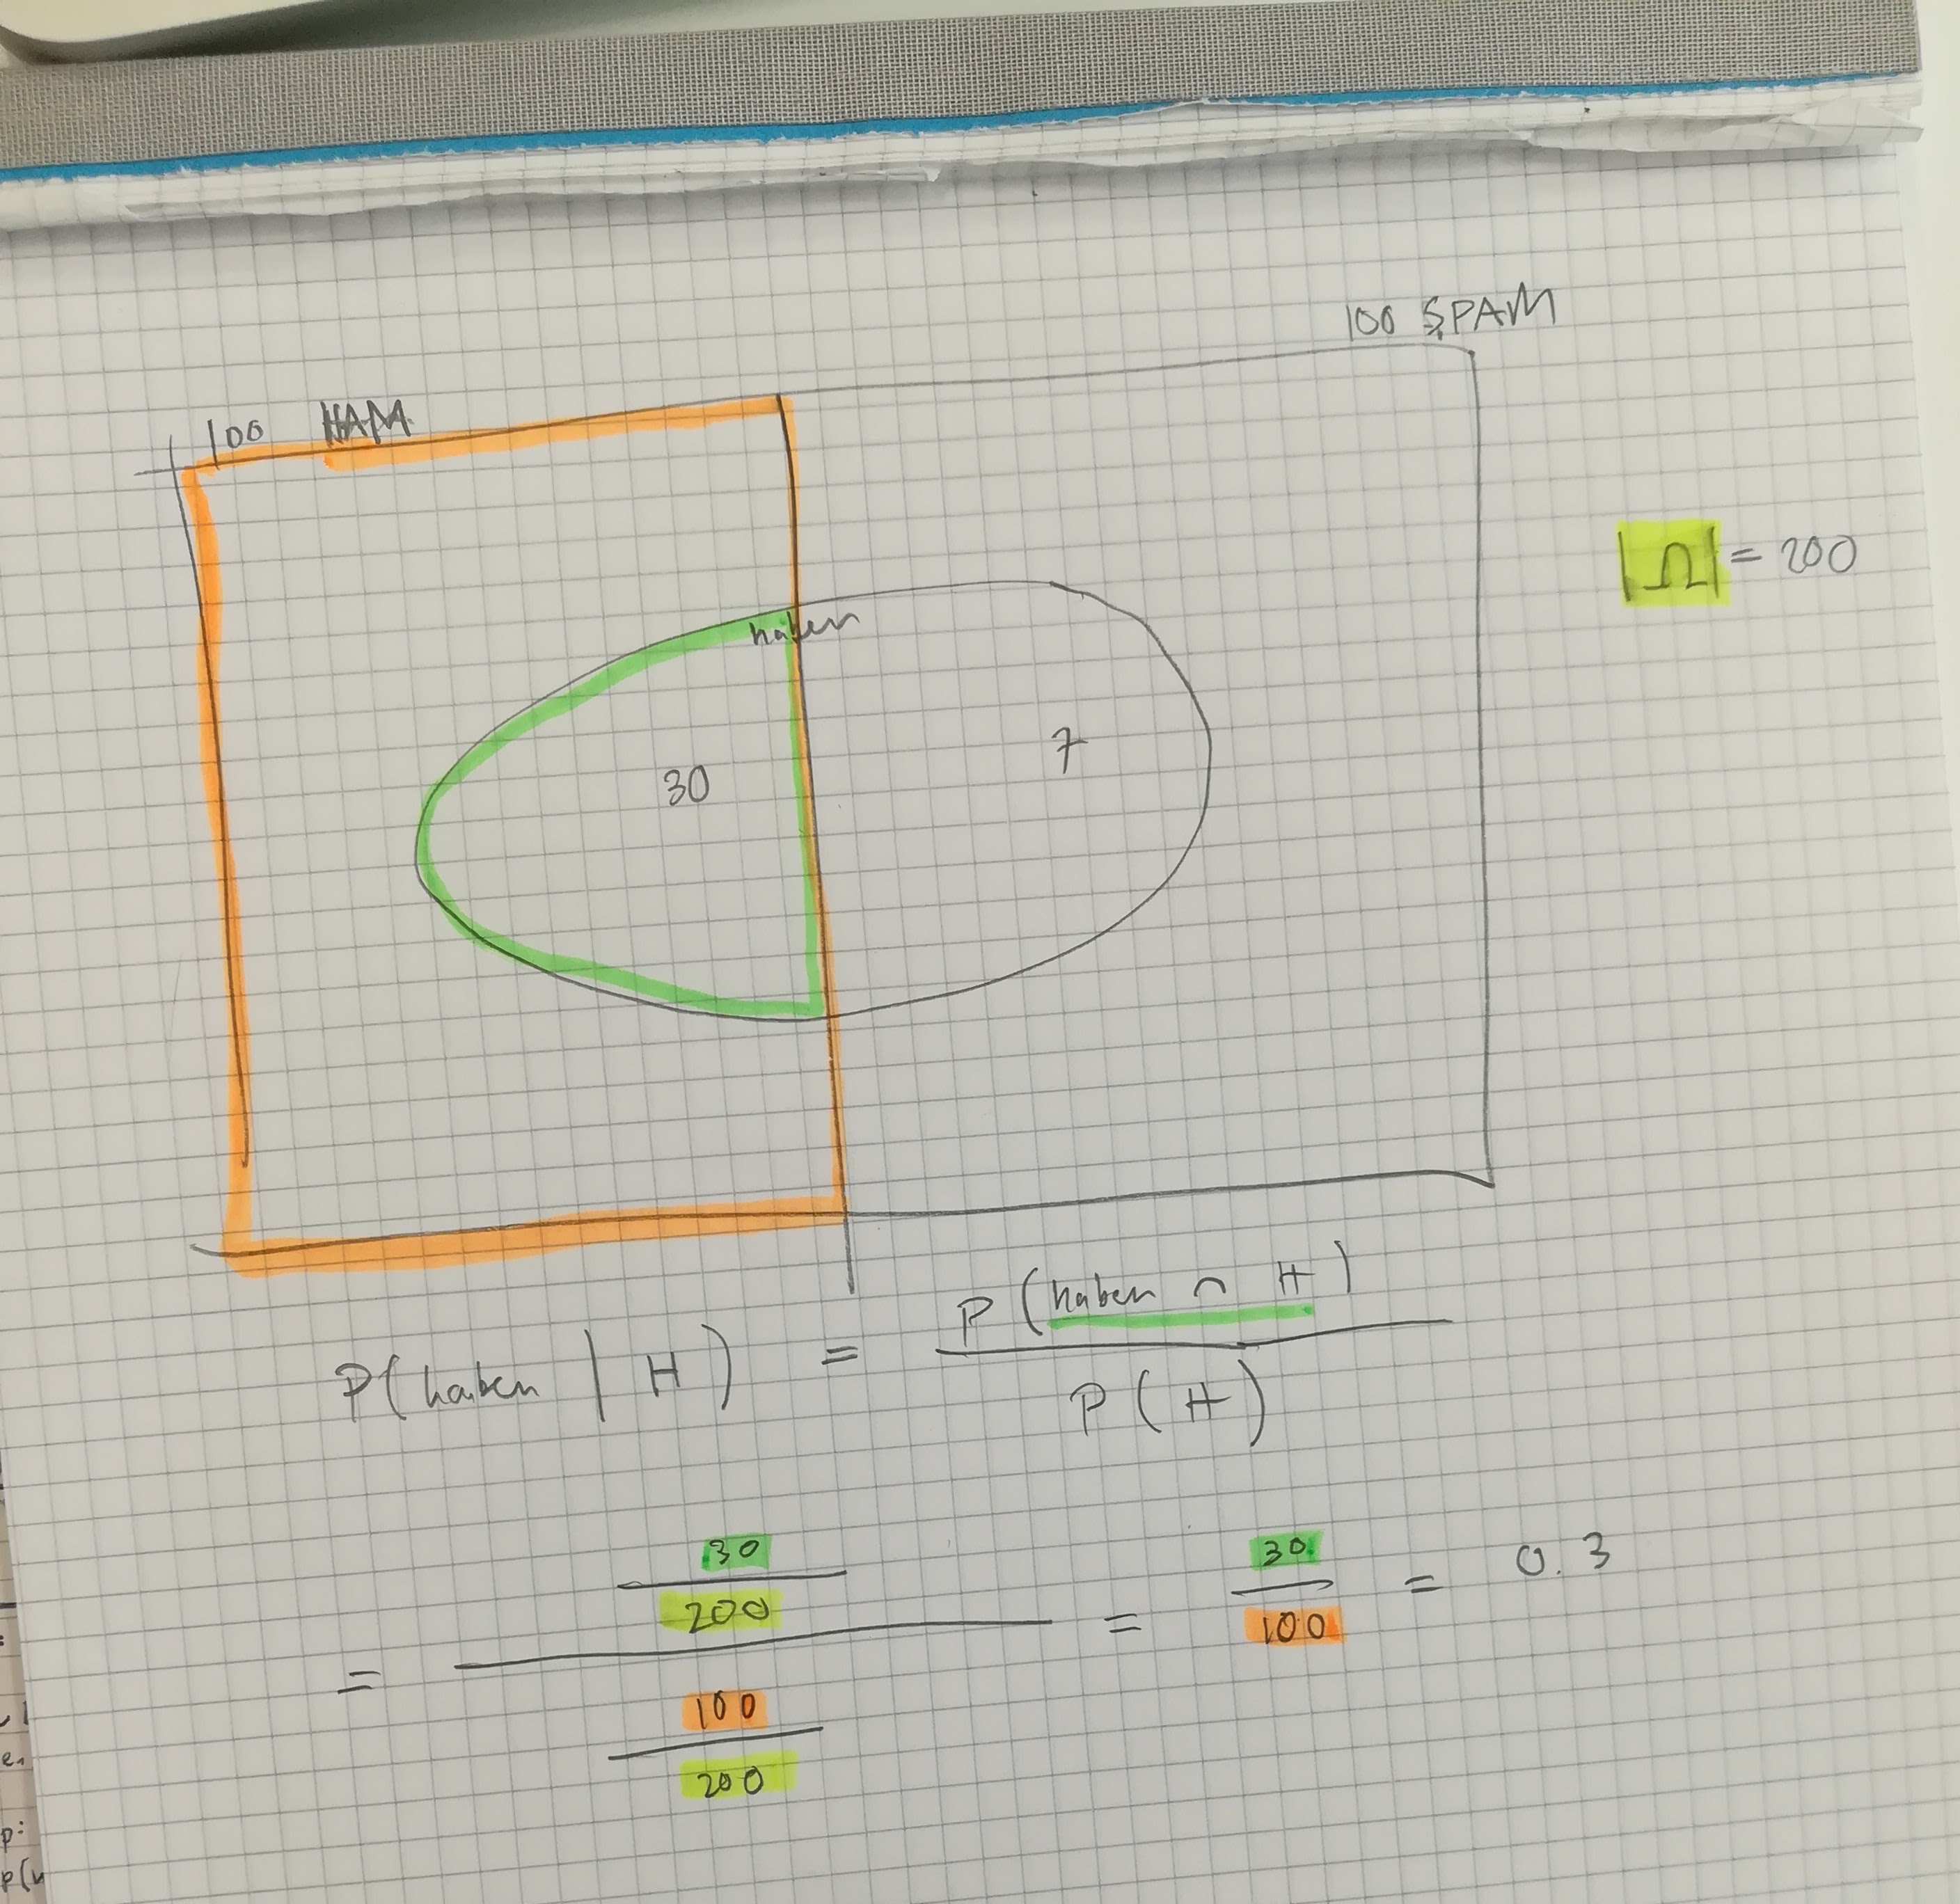 100 SPAM
100 HAM
|Ω| = 200
haben
30
7
P(haben | H) = P(haben ∩ H)
P(H)
30
200
=
100
200
= 30
100
= 0.3